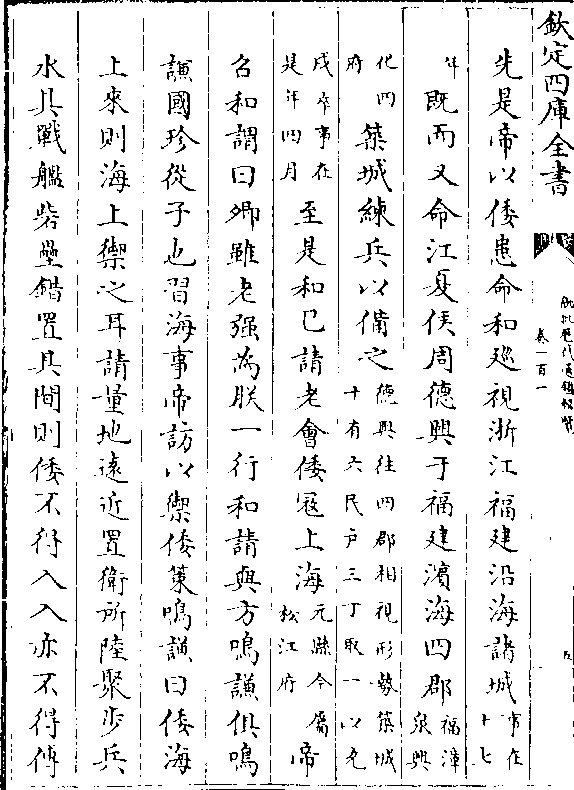 欽定四庫全書
御批歷代通鑑輯覽
卷一百一
先是帝以倭患命和廵視浙江福建沿海諸城事在十七
年既而又命江夏侯周德興于福建濱海四郡福漳泉興
化四府築城練兵以備之德興往四郡相視形勢築城十有六民戶三丁取一以充
戍卒事在是年四月至是和已請老會倭寇上海元縣今屬松江府帝
召和謂曰卿雖老强為朕一行和請與方鳴謙俱鳴
謙國珍從子也習海事帝訪以禦倭策鳴謙曰倭海
上來則海上禦之耳請量地遠近置衛所陸聚步兵
水具戰艦砦壘錯置其間則倭不得入入亦不得傅